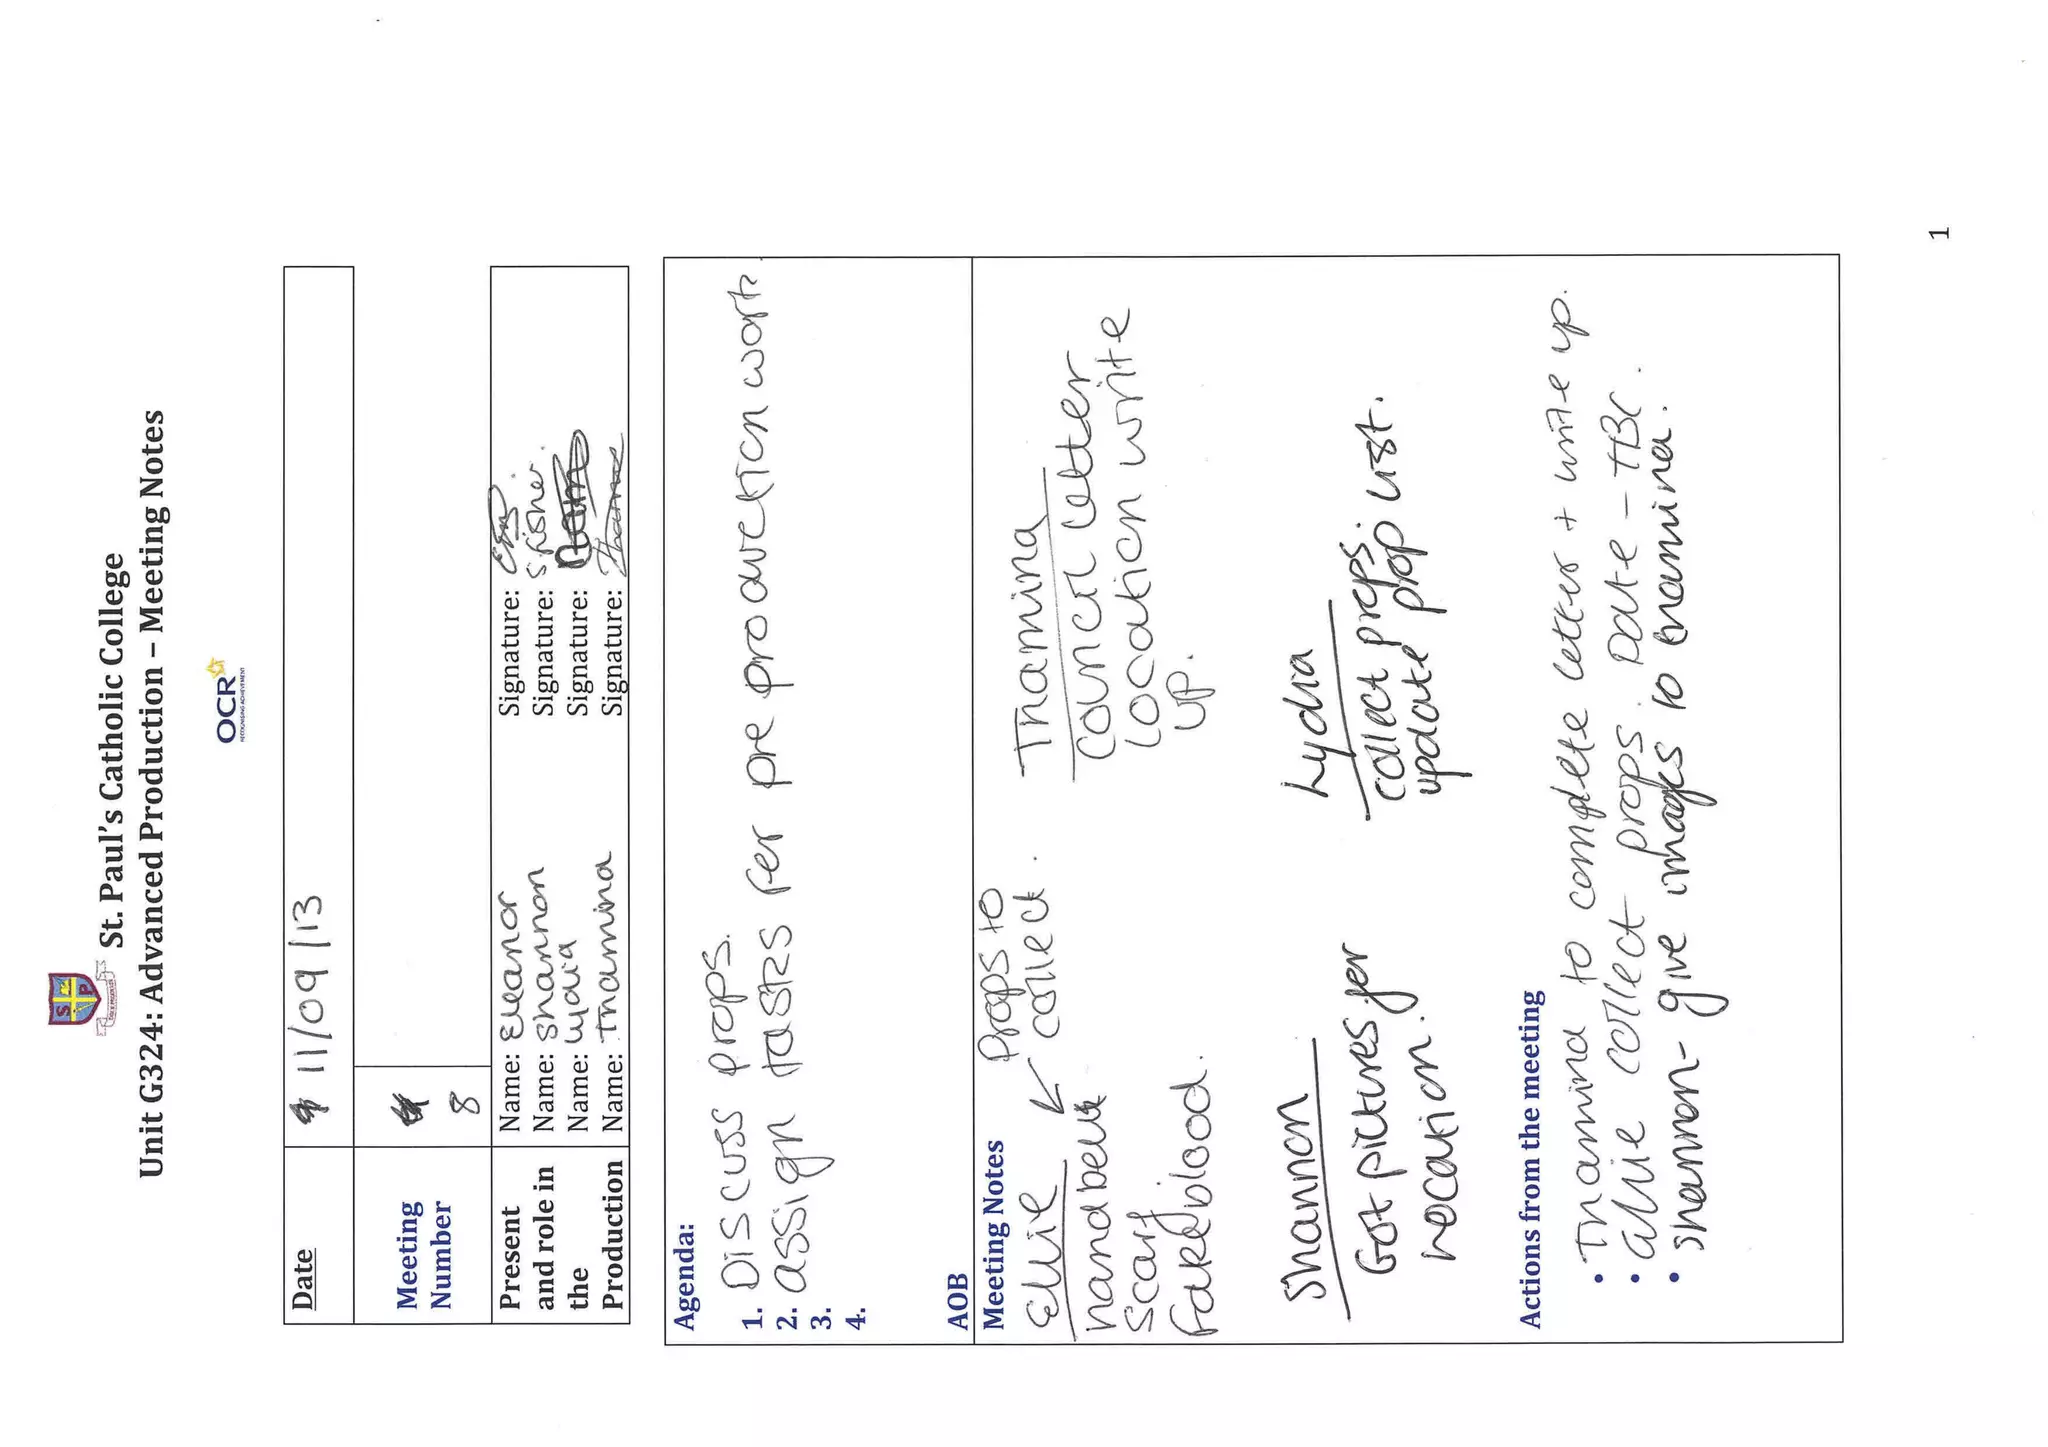 St. Paul's Catholic College
Unit G324: Advanced Production – Meeting Notes
OCR
RECOGNISING ACHIEVEMENT
Date 11/09/13
Meeting Number 8
Present and role in the Production
Name: Eleanor Signature:
Name: Shannon Signature: S Fisher.
Name: Lydia Signature:
Name: Thamina Signature: Thamina
Agenda:
1. Discuss props.
2. assign tasks for pre production work
3.
4.
AOB
Meeting Notes
Ellie
Props to
collect.
handbell
Scarf
Fake blood.
Thamina
Council letter
Location write
up.
Shannon
Got pictures for
Location.
Lydia
collect props.
update prop list.
Actions from the meeting
• Thamina to complete letter + write up.
• Ellie collect props. Date – TBC.
• Shannon – give images to thamina.
1